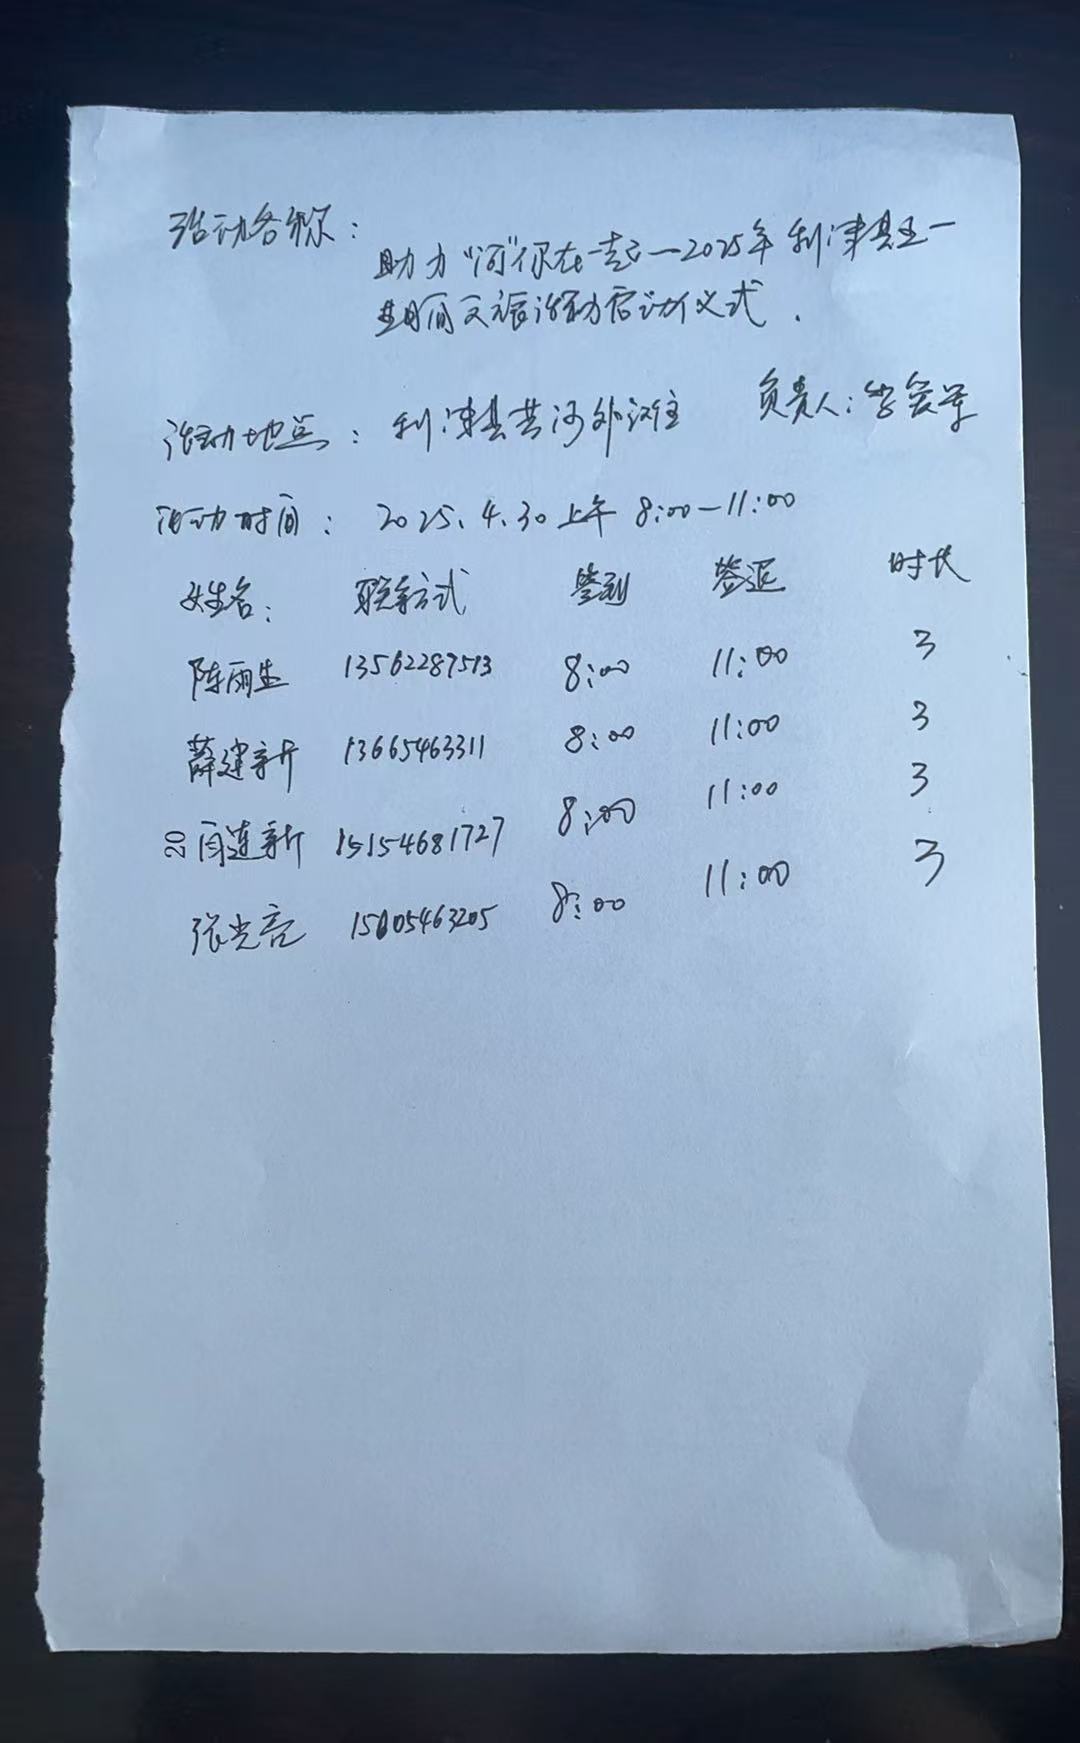 活动名称：
助力“河”你在一起—2025年利津县五一
期间文旅活动启动仪式.
活动地点： 利津县黄河外滩 负责人：李
活动时间： 2025.4.30上午 8:00—11:00
姓名： 联系方式 签到 签退 时长
陈雨生 13562287513 8:00 11:00 3
薛建新 13665463311 8:00 11:00 3
20 闫连新 15154681727 8:00 11:00 3
张光亮 8:00 11:00 3